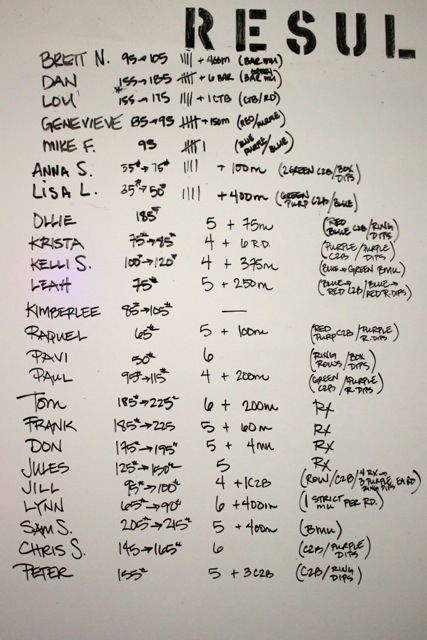 RESUL
BRETT N. 95→105 |||| + 400m (BAR MU)
DAN 155→185 |||| + 6 BAR (BAR MU)
LOU 155→175 |||| + 1 CTB (CTB/RD)
GENEVIEVE 85→95 |||| + 150m (RED/PURPLE)
MIKE F. 95 |||| 1 (BLUE PURPLE/BLUE)
ANNA S. 35#→75# |||| + 100m (2 GREEN C2B/BOX DIPS)
LISA L. 35#→50# |||| + 400m (GREEN PURP C2B/BLUE)
OLLIE 185# 5 + 75m (RED BLUE C2B/RING DIPS)
KRISTA 75#→85# 4 + 6 R.D. (PURPLE C2B/PURPLE DIPS)
KELLI S. 100#→120# 4 + 375m (BLUE→GREEN BMU)
LEAH 75# 5 + 250m (BLUE→RED C2B/BLUE→RED R.DIPS)
KIMBERLEE 85#→105# —
RAQUEL 65# 5 + 100m (RED PURP C2B/PURPLE R.DIPS)
PAVI 50# 6 (RING ROWS/BOX DIPS)
PAUL 95#→115# 4 + 200m (GREEN C2B/PURPLE R.DIPS)
TOM 185#→225# 6 + 200m RX
FRANK 185#→225 5 + 60m RX
DON 175#→195# 5 + 4mu RX
JULES 125#→150# 5 RX
JILL 95#→100# 4 + 1C2B (ROW/C2B/4 RX→3 PURPLE EA RD RING DIPS)
LYNN 65#→90# 6 + 400m (1 STRICT MU PER RD.)
SAM S. 205#→245# 5 + 400m (BMU)
CHRIS S. 145→165# 6 (C2B/PURPLE DIPS)
PETER 155# 5 + 3C2B (C2B/RING DIPS)